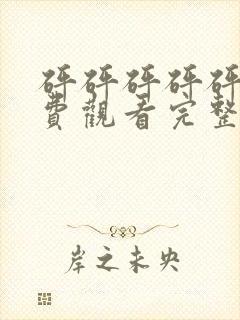 砰砰砰砰砰
費觀看完整
岸之未央